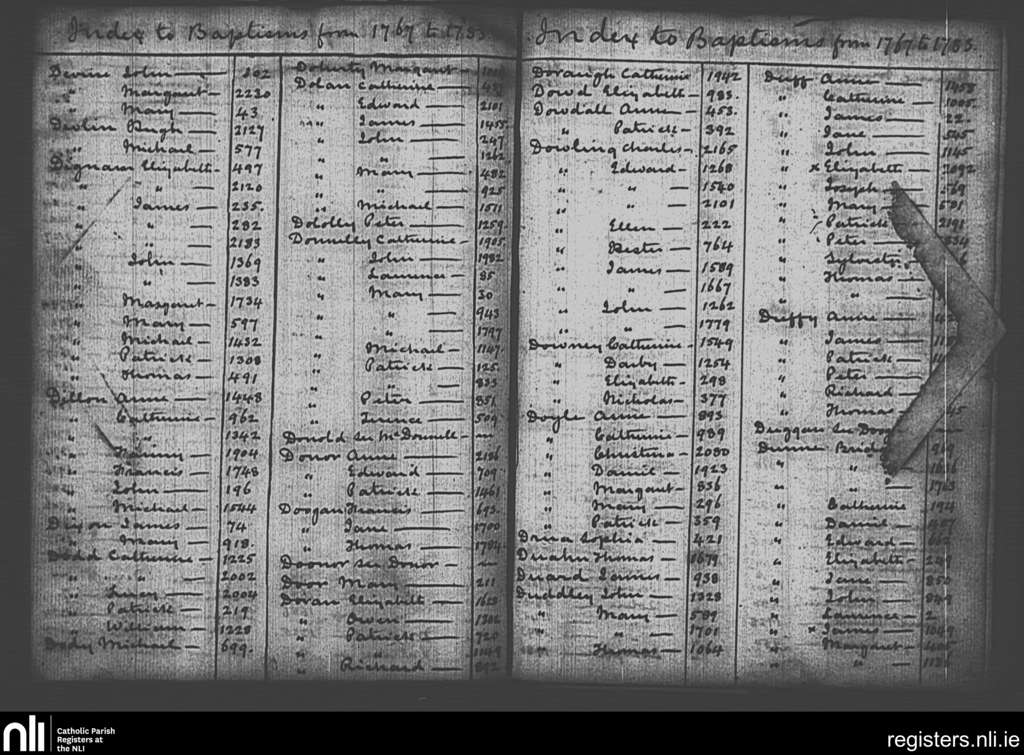 Index to Baptisms from 1767 to 1783
Devine John — 202
" Margaret — 2230
" Mary — 43
Devlin Hugh — 2127
" Michael — 577
Dignam Elizabeth — 497
" " — 2120
" James — 235.
" " — 282
" " — 2183
" John — 1369
" " — 1383
" Margaret — 1734
" Mary — 597
" Michael — 1432
" Patrick — 1308
" Thomas — 491
Dillon Anne — 1448
" Catherine — 962
" " — 1342
" — 1904
" Francis — 1748
" John — 196
" Michael — 1544
Dixon James — 74
" Mary — 918.
Dodd Catherine — 1225
" " — 2002
" Lucy — 2004
" Patrick — 219
" William — 1228
Dody Michael — 699.
Doherty Margaret —
Dolan Catherine —
" Edward — 2101
" James — 1455
" John — 247
" " — 1262
" Mary — 482
" " — 925
" Michael — 1511
Dololly Peter — 1259
Donnelly Catherine — 1905
" John — 1982
" Laurence — 85
" Mary — 30
" " — 943
" " — 1797
" Michael — 1147
" Patrick — 125
" " — 833
" Peter — 851
" Terence — 509
Donold see McDonnell —
Donor Anne — 2186
" Edward — 709
" Patrick — 1461
Doogan Francis — 693.
" Jane — 1700
" Thomas — 1784
Doonor see Donor —
Door Mary — 211
Doran Elizabeth — 1623
" Owen — 1302
" Patrick — 720
" " — 1149
" Richard — 892
Index to Baptisms from 1767 to 1783.
Doraugh Catherine 1942
Dowd Elizabeth — 983.
Dowdall Anne — 453.
" Patrick — 392
Dowling Charles — 2165
" Edward — 1268
" " — 1540
" " — 2101
" Ellen — 222
" Hester — 764
" James — 1589
" " — 1667
" John — 1262
" " — 1779
Downey Catherine — 1549
" Darby — 1254
" Elizabeth — 298
" Nicholas — 377
Doyle Anne — 893
" Catherine — 989
" Christina — 2080
" Daniel — 1923
" Margaret — 836
" Mary — 296
" Patrick — 359
Drina Sophia — 421
Thomas — 1679
Duard James — 938
Duddley John — 1328
" Mary — 589
" " — 1701
" Thomas — 1064
Duff Anne — 1458
" Catherine — 1005
" James — 22
" Jane — 545
" John — 1145
" x Elizabeth — 2092
" Joseph — 569
" Mary — 591
" Patrick 2191
" Peter —
" Sylvester
" Thomas —
" " —
Duffy Anne —
" James —
" Patrick —
" Peter —
" Richard
" Thomas
Duggan see Doogan
Dunne
" "
" " —
" Catherine 194
" Daniel —
" Edward —
" Elizabeth — 229
" Jane — 850
" John —
" Laurence — 2
" x James — 1049
" Margaret —
" " — 1136
nli
Catholic Parish
Registers at
the NLI
registers.nli.ie